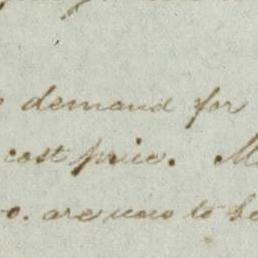 demand for
cost price. M
o. are now to be